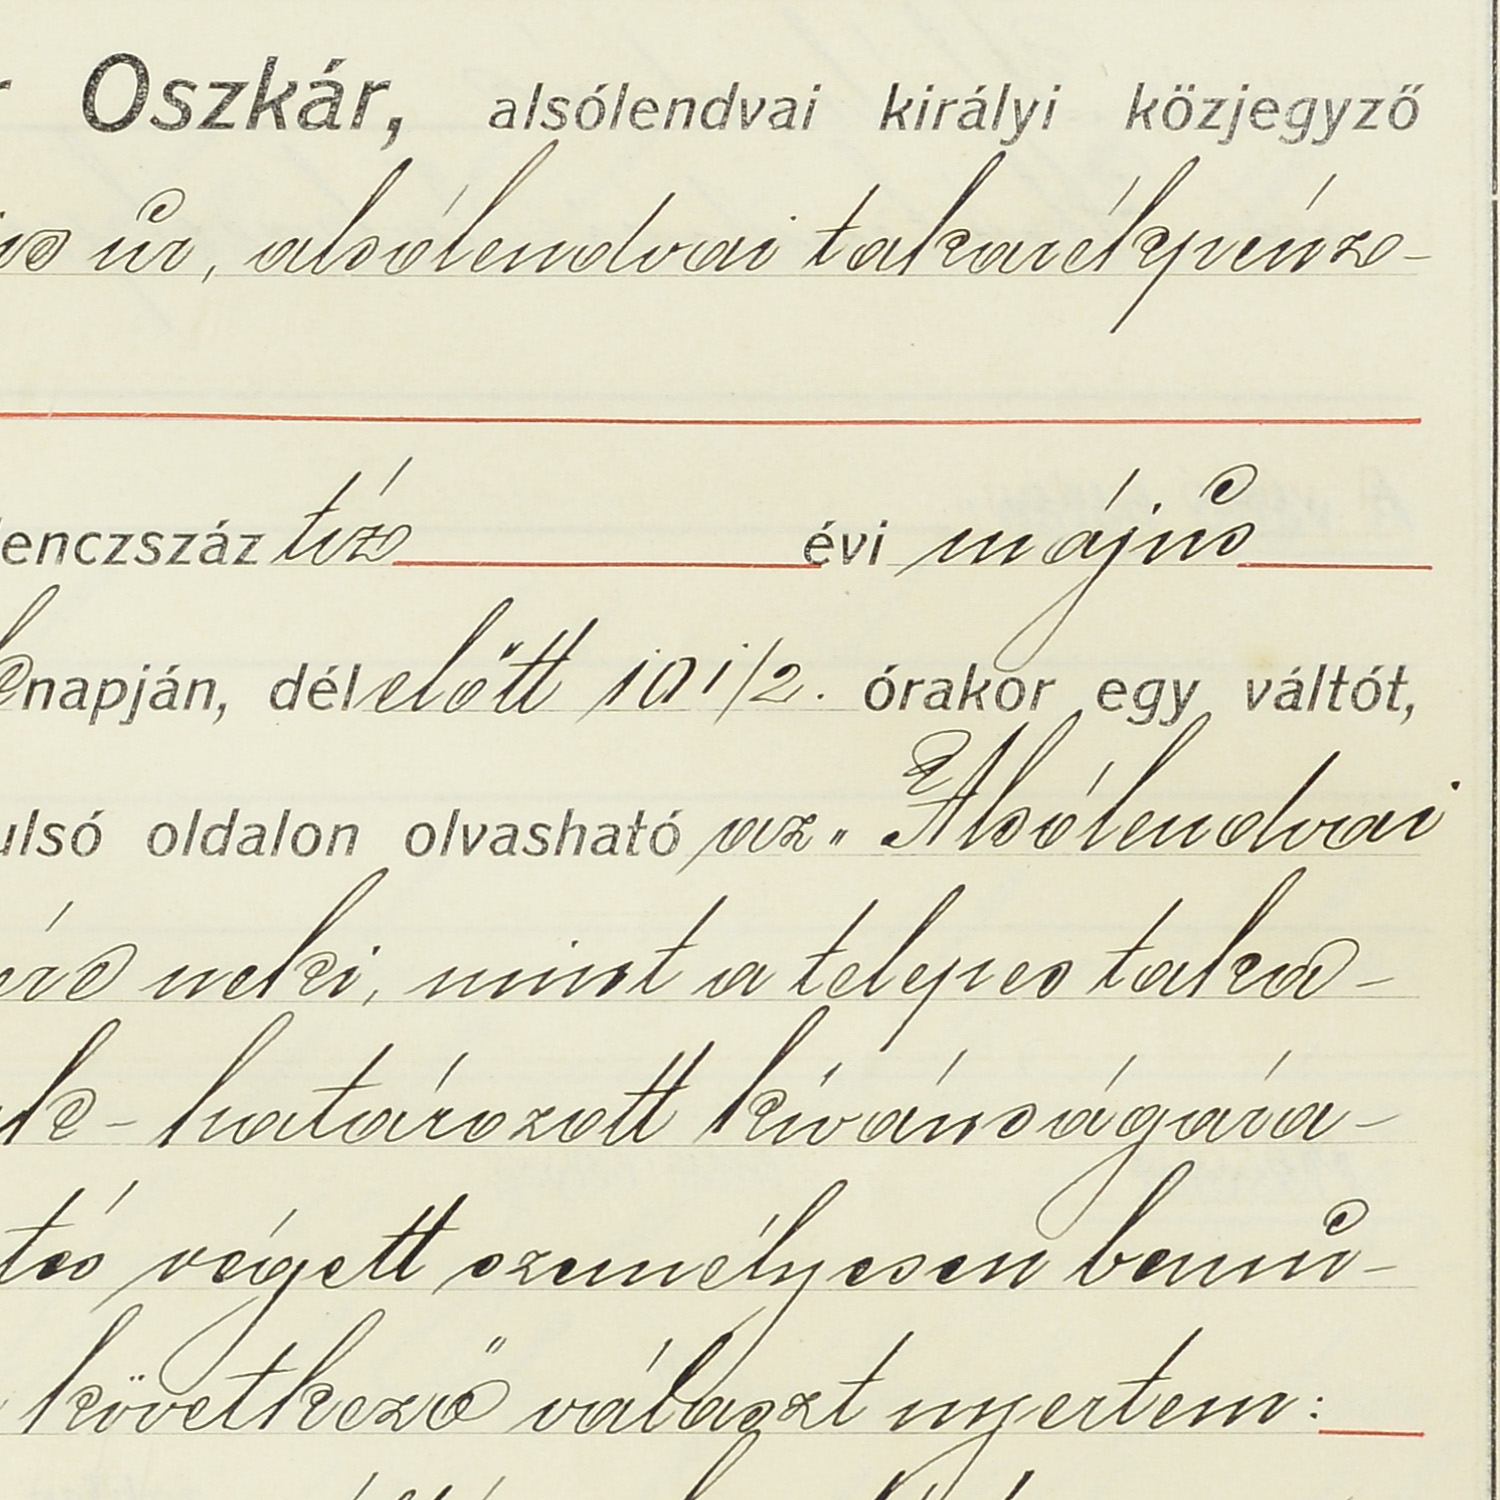 Oszkár, alsólendvai királyi közjegyző
úr, alsólendvai takarékpénz-
lenczszáz tíz évi május
napján, délelőtt 10 1/2. órakor egy váltót,
ulsó oldalon olvasható az „Alsólendvai
neki, mint a telepes taka-
határozott kívánságára-
tés végett személyesen bemu-
következő választ nyertem: